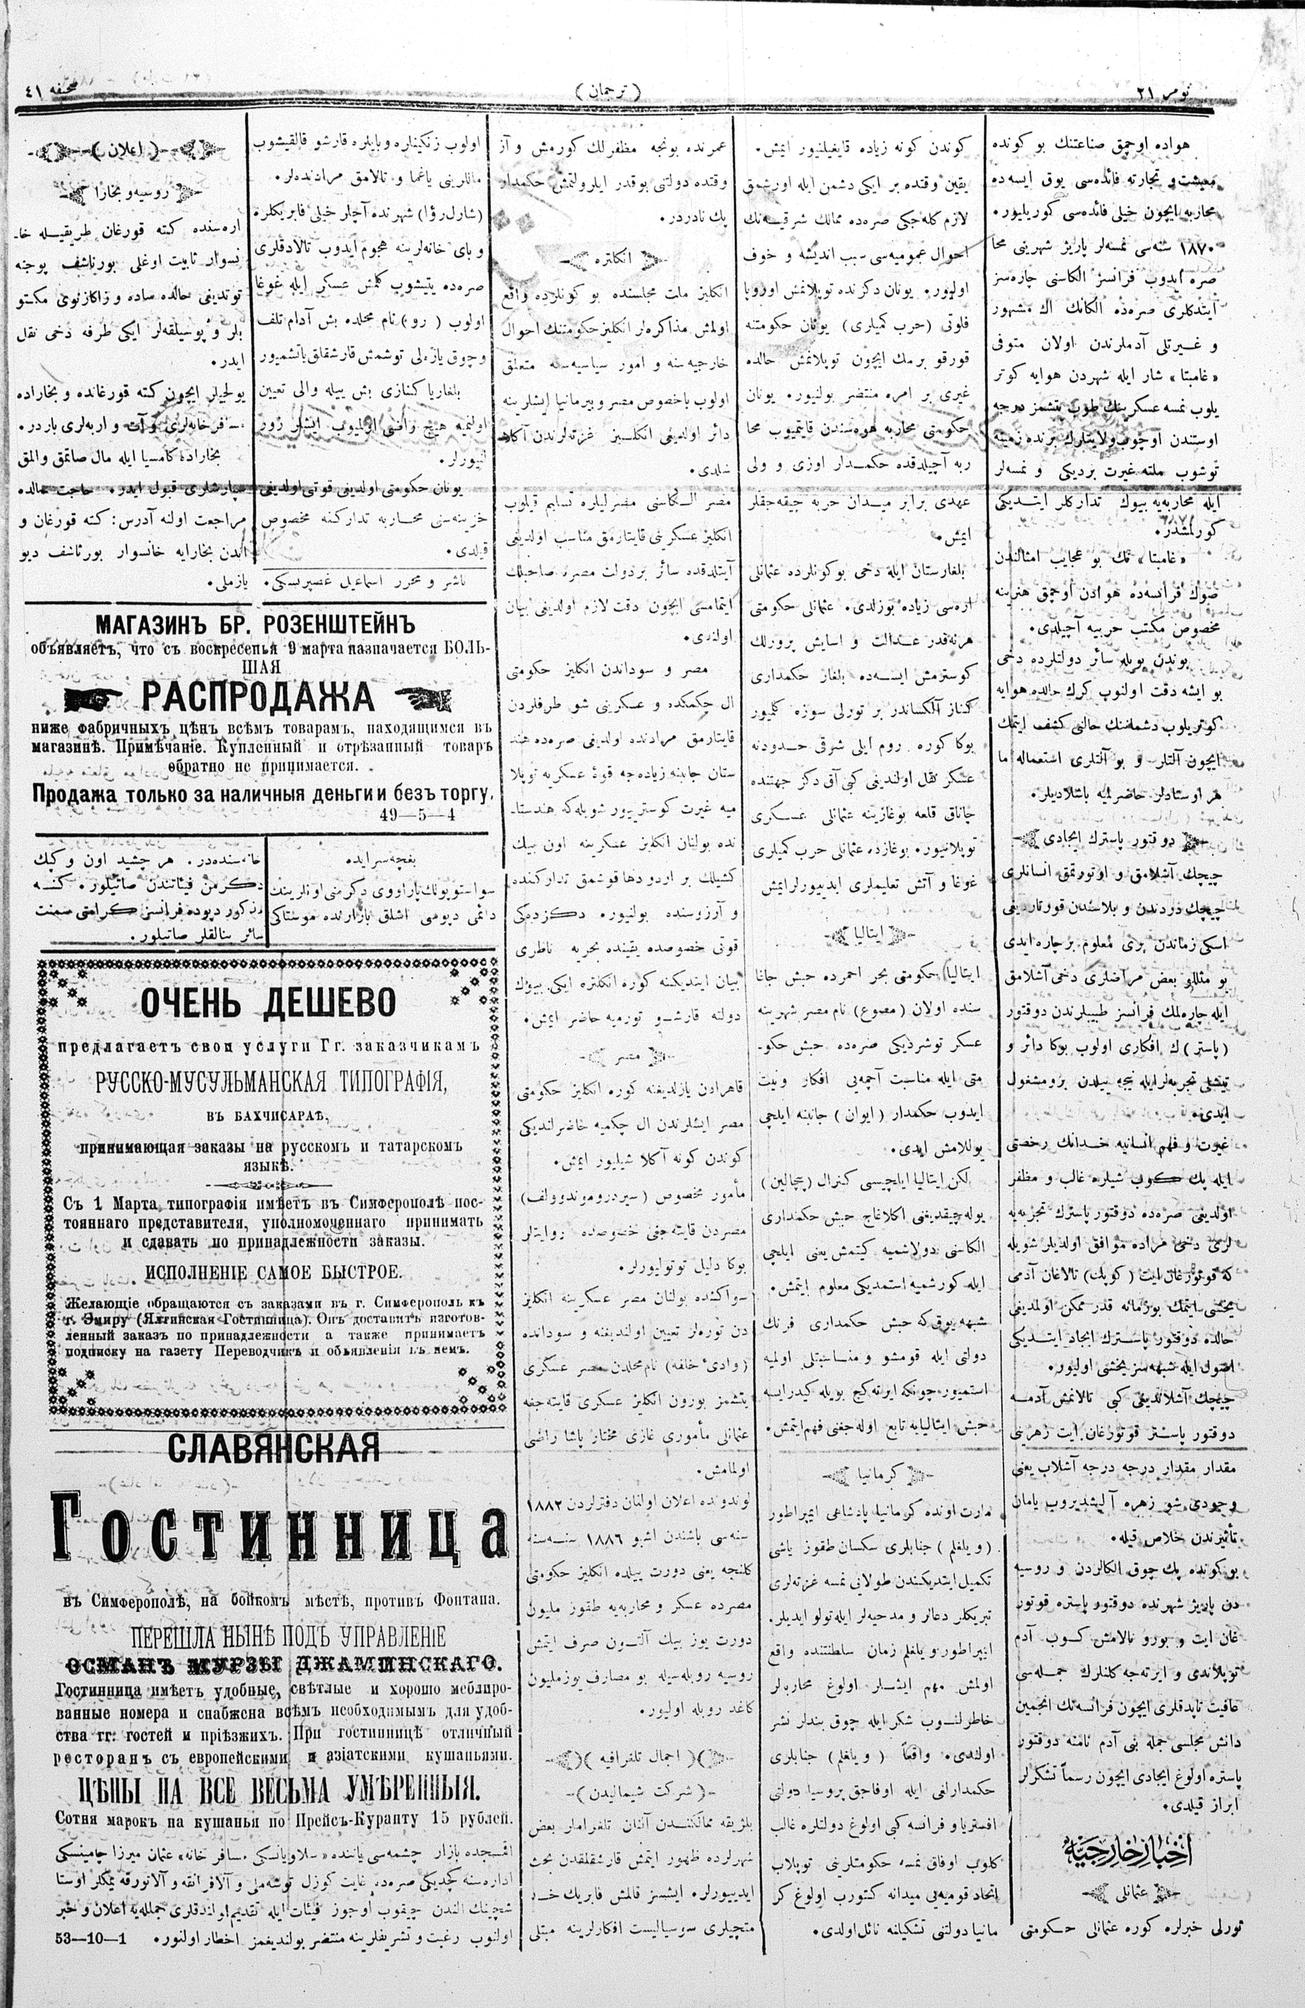 نومر ٢١
( ترجمان )
صحیفه ٤١
هواده اوچمق صناعتنك بو كونده
معیشت و تجارته فائده‌سی یوق ایسه‌ده
محاربه ایچون خیلی فائده‌سی كوریلیور.
١٨٧٠ سنه‌سی نمسه‌لر پاریژ شهرینی محا
صره ایدوب فرانسز الكاسی چاره‌سز
ایتدكلری صره‌ده الكانك اك مشهور
و غیرتلی آدملرندن اولان متوفی
«غامبتا» شار ایله شهردن هوایه كوتر
یلوب نمسه عسكرینك طوب یتشمز درجه
اوستندن اوچوب ولایتلرك برنده زمینه
توشوب ملته غیرت بردیكی و نمسه‌لر
ایله محاربه‌یه بیوك تداركلر ایتدیكی
كورلمشدر.
«غامبتا» نك بو عجایب امثالندن
صوك فرانسه‌ده هوادن اوچمق هنرینه
مخصوص مكتب حربیه آچیلدی.
بوندن بویله سائر دولتلرده دخی
بو ایشه دقت اولنوب كرك حالده هوایه
كوتریلوب دشماننك حالنی كشف ایتمك
ایچون آلتلر و بو آلتلری استعماله ما
هر اوستادلر حاضرلمیه باشلادیلر.
دوقتور پاسترك ایجادی
چیچك آشلامق و اوتورتمق انسانلری
چیچك دردندن و بلاسندن قورتاردیغی
اسكی زماندن بری معلوم بر چاره ایدی
بو مثللو بعض مرضلری دخی آشلامق
ایله چاره‌لمك فرانسز طبیبلرندن دوقتور
(پاستر) ك افكاری اولوب بوكا دائر و
تیشلی تجربه‌لر ایله نیجه ییلدن برو مشغول
ایدی.
غیرت و فهم انسانیه خدانك رخصتی
ایله پك كوب شیلره غالب و مظفر
اولدیغی صره‌ده دوقتور پاسترك تجربه‌یه
لری دخی مراده موافق اولدیلر شویله
كه قوتورغان ایت (كوپك) تالاغان آدمی
یخشی ایتمك بو زمانه قدر ممكن اولمدیغی
حالده دوقتور پاسترك ایجاد ایتدیكی
اصول ایله شبهه‌سز یخشی اولیور.
چیچك آشلاندیغی كبی تالانمش آدمه
دوقتور پاستر قوتورغان ایت زهرینی
مقدار مقدار درجه درجه آشلاب یعنی
وجودی شو زهره آلیشدیروب یامان
تأثیرندن خلاص قیله.
بو كونده پك چوق الكالردن و روسیه
دن پاریژ شهرنده دوقتور پاستره قوتور
غان ایت و بورو تالامش كوب آدم
توپلاندی و ایرته‌جه كلنلرك جمله‌سی
عافیت تاپدقلری ایچون فرانسه‌نك انجمین
دانش مجلسی جمله بنی آدم نامنه دوقتور
پاستره اولوغ ایجادی ایچون رسماً تشكرلر
ابراز قیلدی.
اخبار خارجیه
عثمانلی
تورلی خبرلره كوره عثمانلی حكومتی
كوندن كونه زیاده قایغیلنیور ایمش.
یقین وقتده بر ایكی دشمن ایله اورشمق
لازم كله‌جكی صره‌ده ممالك شرقیه‌نك
احوال عمومیه‌سی سبب اندیشه و خوف
اولیور. یونان دكزنده توپلانمش اوروپا
فلوتی (حرب كمیلری) یونان حكومتنه
قورقو برمك ایچون توپلانمش حالده
غیری بر امره منتضر بولنیور. یونان
حكومتی محاربه هوه‌سندن قایتمیوب محا
ربه آچیلدقده حكمدار اوزی و ولی
عهدی برابر میدان حربه چیقه‌جقلر
ایمش.
بلغارستان ایله دخی بو كونلرده عثمانلی
اره‌سی زیاده بوزلدی. عثمانلی حكومتی
هرنه‌قدر عدالت و اسایش پرورلك
كوسترمش ایسه‌ده بلغار حكمداری
كناز آلكساندر بر تورلی سوزه كلمیور
بوكا كوره روم ایلی شرقی حدودنه
عسكر نقل اولندیغی كبی آق دكز جهتنده
چاناق قلعه بوغازینه عثمانلی عسكری
توپلانیور. بوغازده عثمانلی حرب كمیلری
غوغا و آتش تعلیملری ایدییورلر ایمش
ایتالیا
ایتالیا حكومتی بحر احمرده حبش جانا
سنده اولان (مصوع) نام مصر شهرینه
عسكر توشردیكی صره‌ده حبش حكو-
متی ایله مناسبت آچمه‌یی افكار و نیت
ایدوب حكمدار (ایوان) جانبنه ایلچی
یوللامش ایدی.
لكن ایتالیا ایلچیسی كنرال (پچالین)
یوله چیقدیغی اكلاغاج حبش حكمداری
الكاسنی دولاشمیه كیتمش یعنی ایلچی
ایله كورشمیه استمدیكی معلوم ایتمش.
شبهه یوق‌كه حبش حكمداری فرنك
دولتی ایله قومشو و مناسبتلی اولمیه
استمیور چونكه ایرته كج بویله كیدر ایسه
حبش ایتالیایه تابع اوله‌جغنی فهم ایتمش.
كرمانیا
مارت اونده كرمانیا پادشاهی ایمپراطور
(ویلغلم) جنابلری سكسان طقوز یاشی
تكمیل ایتدیكندن طولانی نمسه غزته‌لری
تبریكلر دعالر و مدحیه‌لر ایله تولو ایدیلر.
ایمپراطور ویلغلم زمان سلطنتنده واقع
اولمش مهم ایشلر اولوغ محاربه‌لر
خاطرلنوب شكر ایله چوق بندلر نشر
اولندی. واقعاً (ویلغلم) جنابلری
حكمدارلغی ایله اوفاجق پروسیا دولتی
افستریا و فرانسه كبی اولوغ دولتلره غالب
كلوب اوفاق نمسه حكومتلرینی توپلاب
اتحاد قومیه‌یی میدانه كتورب اولوغ كر
مانیا دولتنی تشكیلنه نائل اولدی.
عمرنده بونجه مظفرلك كورمش و آز
وقتده دولتی بوقدر ایلرولتمش حكمدار
پك نادردر.
انكلتره
انكلیز ملت مجلسنده بو كونلرده واقع
اولمش مذاكره‌لر انكلیز حكومتنك احوال
خارجیه‌سنه و امور سیاسیه‌سنه متعلق
اولوب باخصوص مصر و بیرمانیا ایشلرینه
دائر اولدیغی انكلیز غزته‌لرندن آكلا
شلدی.
مصر الكاسنی مصرلیلره تسلیم قیلوب
انكلیز عسكرینی قایتارمق مناسب اولدیغی
آیتلدقده سائر بر دولت مصره صاحبلك
ایتمامسی ایچون دقت لازم اولدیغی بیان
اولندی.
مصر و سوداندن انكلیز حكومتی
ال چكمكده و عسكرینی شو طرفلردن
قایتارمق مرادنده اولدیغی صره‌ده هند
ستان جانبنه زیاده‌جه قوهٔ عسكریه توپلا
میه غیرت كوستریور شویله‌كه هندستا-
نده بولنان انكلیز عسكرینه اون بیك
كشیلك بر اردو دها قوشمق تداركنده
و آرزوسنده بولنیور. دكزده‌كی
قوتی خصوصده یقینده بحریه ناظری
بیان ایتدیكنه كوره انكلتره ایكی بیوك
دولته قارشو تورمیه حاضر ایمش.
مصر
قاهرادن یازلدیغنه كوره انكلیز حكومتی
مصر ایشلرندن ال چكمیه حاضرلندیكی
كوندن كونه آكلاشیلیور ایمش.
مأمور مخصوص (سیر دروموندوولف)
مصردن قایته‌جغی خصوصده روایتلر
بوكا دلیل توتولیورلر.
سواكنده بولنان مصر عسكرینه انكلیز
دن توره‌لر تعیین اولندیغنه و سودانده
(وادی خلفه) نام محلدن مصر عسكری
یتشمز بورون انكلیز عسكری قایته‌جغه
عثمانلی مأموری غازی مختار پاشا راضی
اولمامش.
لوندونده اعلان اولنان دفترلردن ١٨٨٢
سنه‌سی باشندن اشبو ١٨٨٦ سنه‌سنه
كلنجه یعنی دورت ییلده انكلیز حكومتی
مصرده عسكر و محاربه‌یه طقوز ملیون
دورت یوز بیك آلتون صرف ایتمش
روسیه روبله‌سیله بو مصارف یوز ملیون
كاغد روبله اولیور.
( اجمال تلغرافیه )
( شركت شمالیدن )
بلژیقه ممالكندن آلنان تلغرامار بعض
شهرلرده ظهور ایتمش قارشقلقدن بحث
ایدییورلر. ایشسز قالمش فابریك خد
متچیلری سوسیالیست افكارلرینه مبتلی
اولوب زنكینلره و بایلره قارشو قالقیشوب
ماللرینی یاغما و تالامق مرادنده‌لر.
(شارل‌رؤا) شهرنده آچلر خیلی فابریكلره
و بای خانه‌لرینه هجوم ایدوب تالادقلری
صره‌ده یتیشوب كلمش عسكر ایله غوغا
اولوب (رو) نام محلده بش آدام تلف
و چوق یازه‌لی توشمش قارشقلق باتشمیور
بلغاریا كنازی بش ییله والی تعیین
اولنمیه هیچ راضی اولمیوب ایشلر زور
لنیورلر.
یونان حكومتی اولدیغی قوتی اولدیغی
خزینه‌سنی محاربه تداركنه مخصوص
قیلدی.
ناشر و محرر اسماعیل غصپرینسكی.
( اعلان )
روسیه و بخارا
اره‌سنده كته قورغان طریقیله خا-
نسوار ثابت اوغلی بورناشف پوچته
توتدیغی حالده ساده و زاكازنوی مكتو
بلر و پوسیلقه‌لر ایكی طرفه دخی نقل
ایدر.
یولجیلر ایچون كته قورغانده و بخاراده
مسافرخانه‌لری و آت و اربه‌لری باردر.
بخاراده كامسیا ایله مال صاتمق و المق
سپارشلری قبول ایدر. حاجت حالده
مراجعت اولنه آدرس: كته قورغان و
اندن بخارایه خانسوار بورناشف دیو
یازملی.
МАГАЗИНЪ БР. РОЗЕНШТЕЙНЪ
объявляетъ, что съ воскресенья 9 марта назначается БОЛЬ-
ШАЯ
РАСПРОДАЖА
ниже фабричныхъ цѣнъ всѣмъ товарамъ, находящимся въ
магазинѣ. Примѣчаніе. Купленный и отрѣзанный товаръ
обратно не принимается.
Продажа только за наличныя деньги и безъ торгу.
49—5—4
بغچه سرایده
سواستوپولنك پاراووی دكرمنی اونلرینك
دائمی دیپوسی اشلق بازارنده موستاكی
خانه‌سنده‌در. هر چشید اون و كپك
دكرمن فیئاتندن صاتیلور. كنسه
مذكور دپوده فرانسز كرامتی سمنت
سائر بنالقلر صاتیلور.
ОЧЕНЬ ДЕШЕВО
предлагаетъ свои услуги Гг. заказчикамъ
РУССКО-МУСУЛЬМАНСКАЯ ТИПОГРАФІЯ,
въ БАХЧИСАРАѢ,
принимающая заказы на русскомъ и татарскомъ
языкѣ.
Съ 1 Марта типографія имѣетъ въ Симферополѣ пос-
тояннаго представителя, уполномоченнаго принимать
и сдавать по принадлежности заказы.
ИСПОЛНЕНІЕ САМОЕ БЫСТРОЕ.
Желающіе обращаются съ заказами въ г. Симферополь къ
г. Эмиру (Ялтинская Гостинница). Онъ доставитъ изготов-
ленный заказъ по принадлежности а также принимаетъ
подписку на газету Переводчикъ и объявленія въ немъ.
СЛАВЯНСКАЯ
Гостинница
въ Симферополѣ, на бойкомъ мѣстѣ, противъ Фонтана.
ПЕРЕШЛА НЫНѢ ПОДЪ УПРАВЛЕНІЕ
ОСМАНЪ МУРЗЫ ДЖАМИНСКАГО.
Гостинница имѣетъ удобные, свѣтлые и хорошо меблиро-
ванные номера и снабжена всѣмъ необходимымъ для удоб-
ства гг. гостей и пріѣзжихъ. При гостинницѣ отличный
ресторанъ съ европейскими и азіатскими кушаньями.
ЦѢНЫ НА ВСЕ ВЕСЬМА УМѢРЕННЫЯ.
Сотня марокъ на кушанья по Прейсъ-Куранту 15 рублей.
اقمجده بازار چشمه‌سی یاننده «سلاویانسكی مسافر خانه» عثمان میرزا جامینسكی
اداره‌سنه كچدیكی صره‌ده غایت كوزل توشه‌ملی و آلافرانقه و آلاتورقه یمكلر اوستا
شچینك الندن چیقوب اوجوز فیئات ایله تقدیم اولندقلری جمله‌یه اعلان و خبر
اولنوب رغبت و تشریفلرینه منتضر بولندیغمز اخطار اولنور.
53—10—1